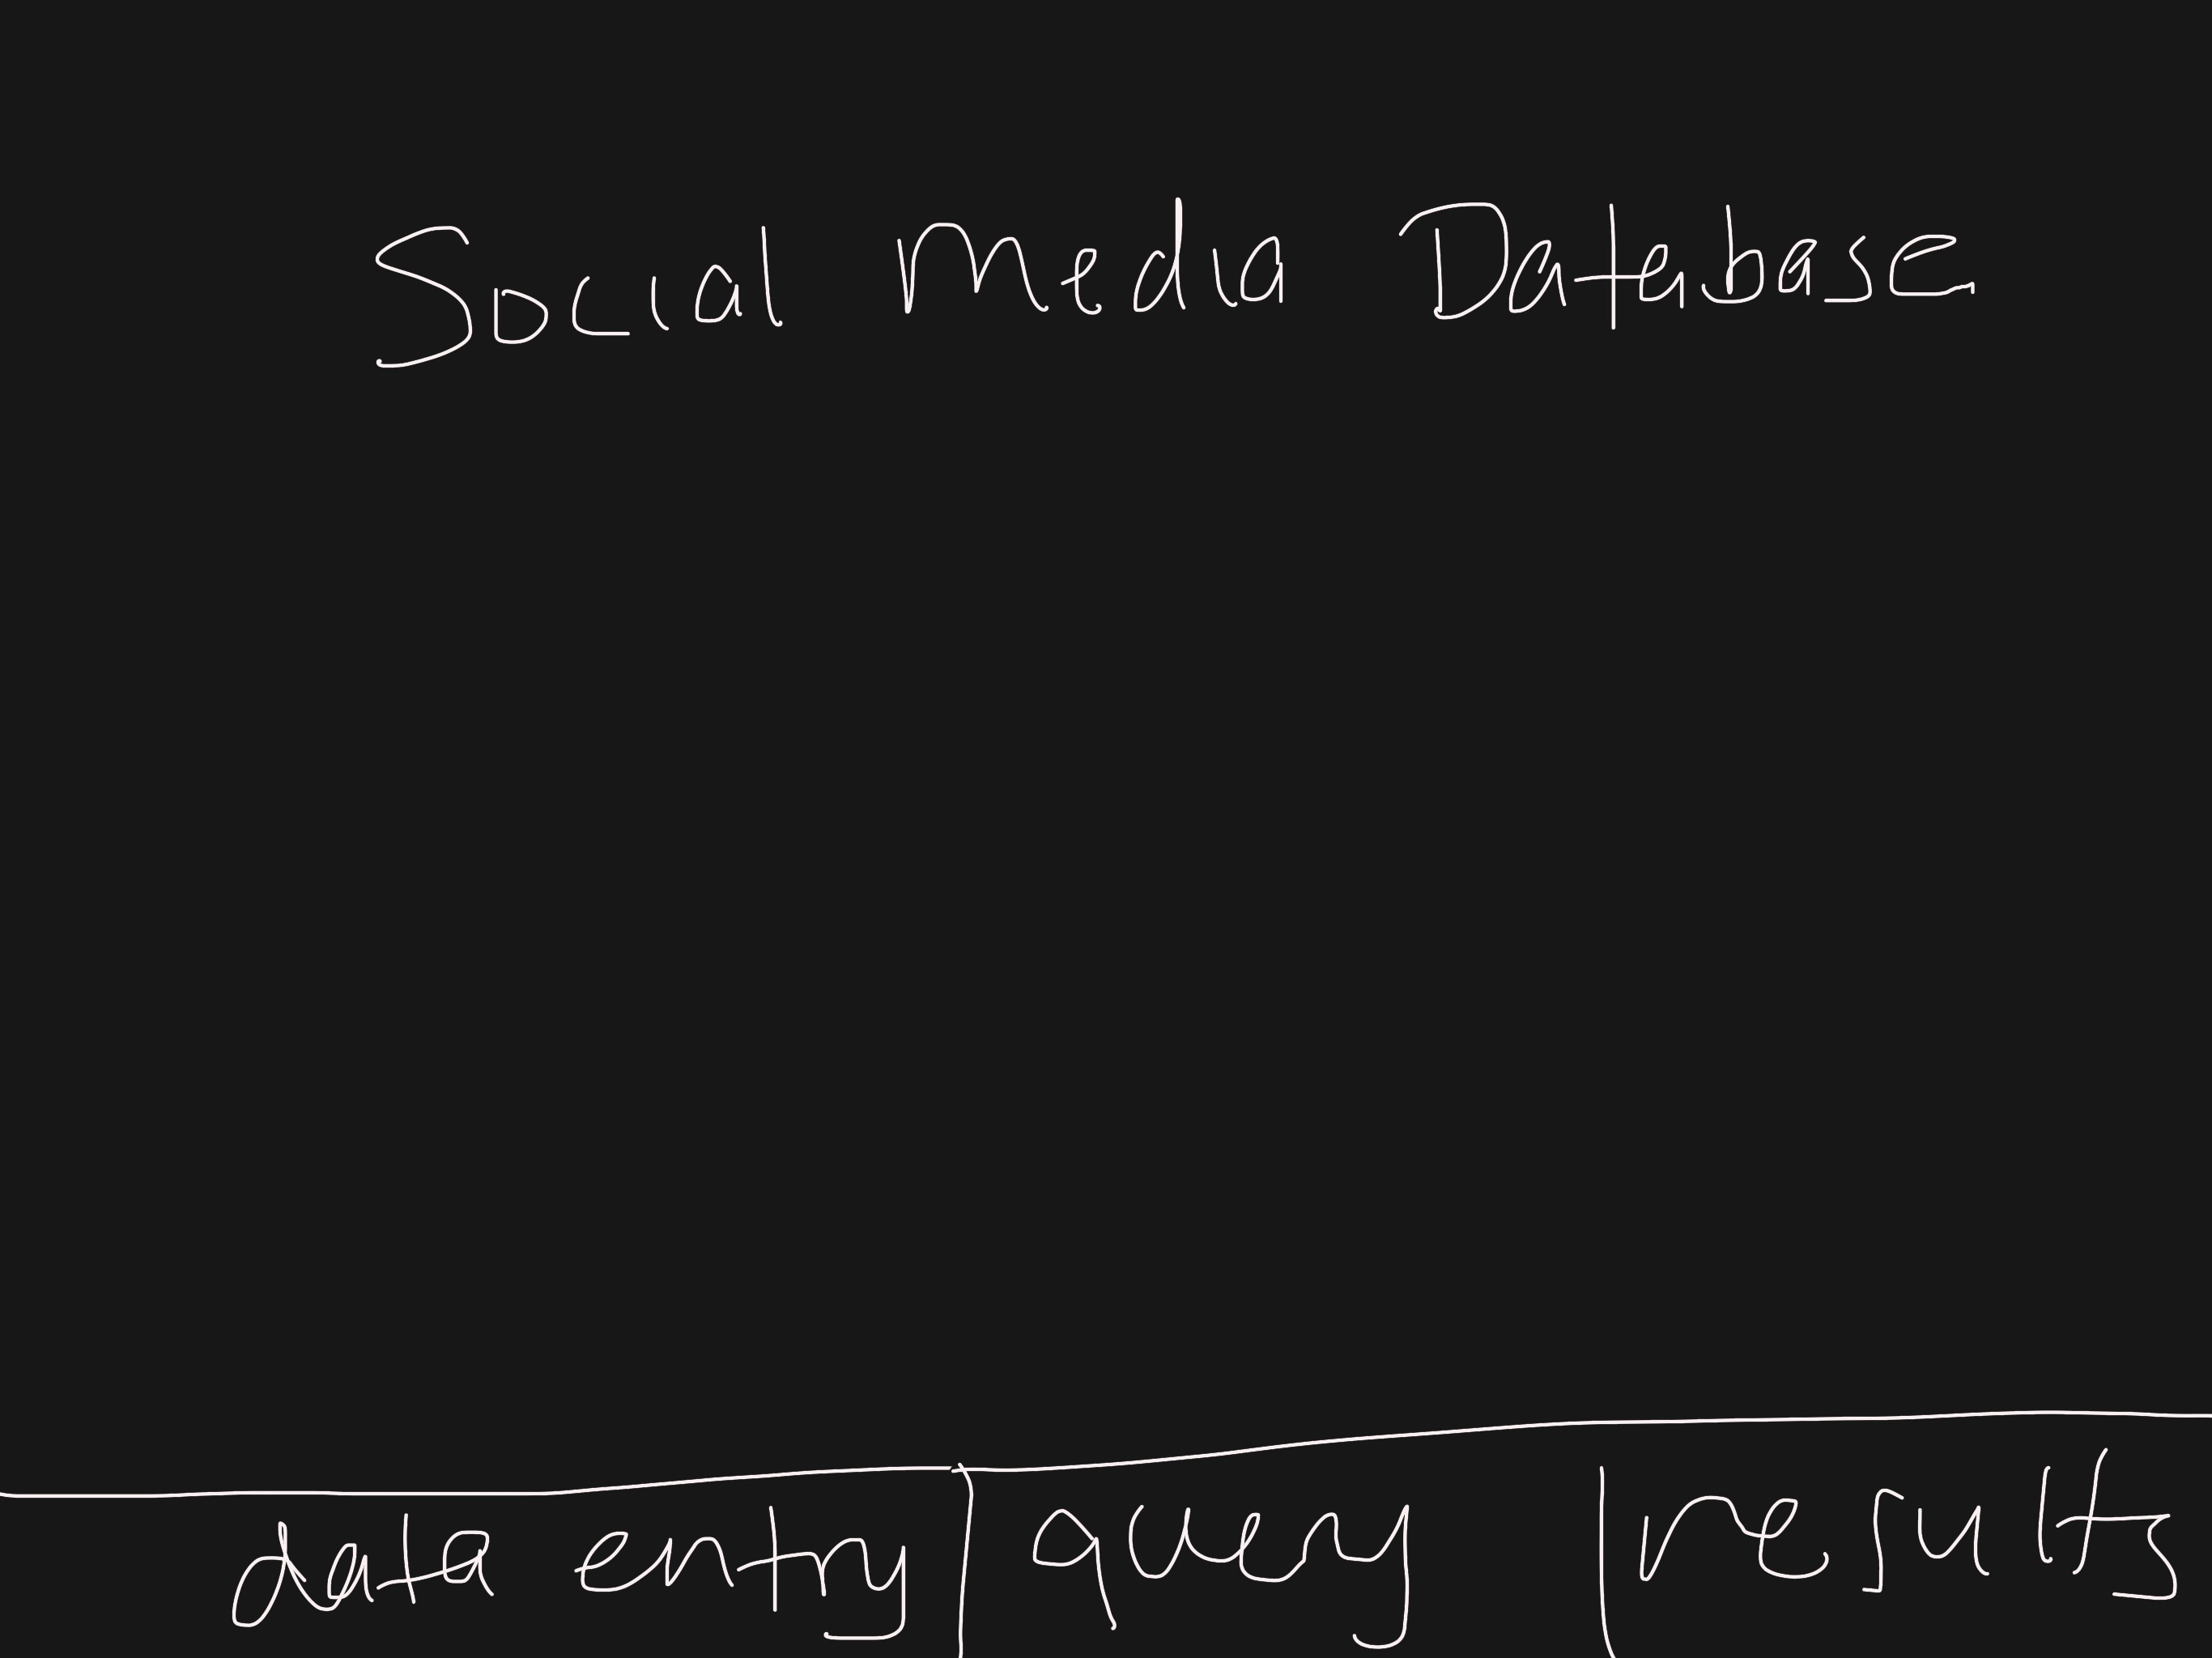 Social Media Database
data entry query results